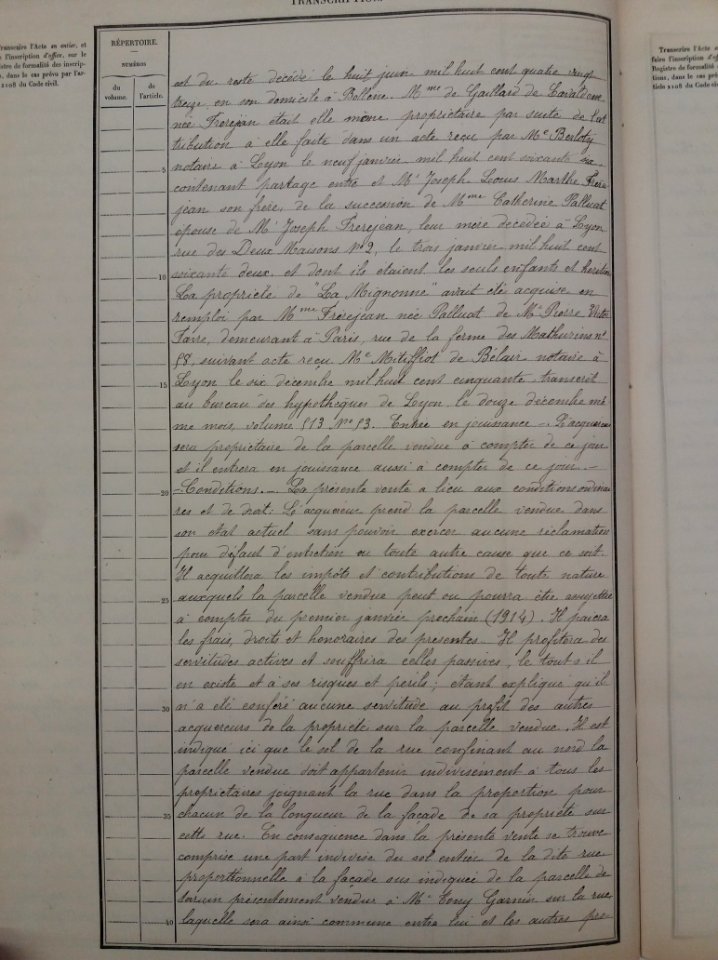 TRANSCRIPTION
Transcrire l'Acte en entier, et
faire l'inscription d'office, sur le
Registre de formalité des inscrip-
tions, dans le cas prévu par l'ar-
ticle 2108 du Code civil.
RÉPERTOIRE.
NUMÉROS
du volume.
de l'article.
est du reste décédé le huit juin mil huit cent quatre vingt
treize en son domicile à Bollène. Mme de Gaillard de Lavaldène
née Frèrejean était elle même propriétaire par suite de l'at
tribution à elle faite dans un acte reçu par Me Berloty
notaire à Lyon le neuf janvier mil huit cent soixante six
5
contenant partage entre et Mr Joseph Louis Marthe Frère
jean son frère, de la succession de Mme Catherine Palluat
épouse de Mr Joseph Frèrejean, leur mère décédée à Lyon
rue des Deux Maisons No 2, le trois janvier mil huit cent
soixante deux et dont ils étaient les seuls enfants et héritiers
10
La propriété de "La Mignonne" avait été acquise en
remploi par Mme Frèrejean née Palluat de Mr Pierre Victor
Favre, demeurant à Paris, rue de la ferme des Mathurins no
58, suivant acte reçu Me Mitiffiot de Bélair notaire à
Lyon le six décembre mil huit cent cinquante transcrit
15
au bureau des hypothèques de Lyon le douze décembre mê
me mois, volume 513 No 53. Entrée en jouissance - L'acquéreur
sera propriétaire de la parcelle vendue à compter de ce jour
et il entrera en jouissance aussi à compter de ce jour. -
- Conditions. - La présente vente a lieu aux conditions ordinai
20
res et de droit: L'acquéreur prend la parcelle vendue dans
son état actuel sans pouvoir exercer aucune réclamation
pour défaut d'entretien ou toute autre cause que ce soit.
Il acquittera les impôts et contributions de toute nature
auxquels la parcelle vendue peut ou pourra être assujettie
25
à compter du premier janvier prochain (1914). Il paiera
les frais, droits et honoraires des présentes - Il profitera des
servitudes actives et souffrira celles passives, le tout s'il
en existe et à ses risques et périls; étant expliqué qu'il
n'a été conféré aucune servitude au profit des autres
30
acquéreurs de la propriété sur la parcelle vendue. Il est
indiqué ici que le sol de la rue confinant au nord la
parcelle vendue doit appartenir indivisément à tous les
propriétaires joignant la rue dans la proportion pour
chacun de la longueur de la façade de sa propriété sur
35
cette rue. En conséquence dans la présente vente se trouve
comprise une part indivise du sol entier de la dite rue
proportionnelle à la façade sus indiquée de la parcelle de
terrain présentement vendue à Mr Tony Garnier sur la rue
laquelle sera ainsi commune entre lui et les autres pro-
40
Transcrire l'Acte
faire l'inscription d'
Registre de formalité
tions, dans le cas
ticle 2108 du Code civ